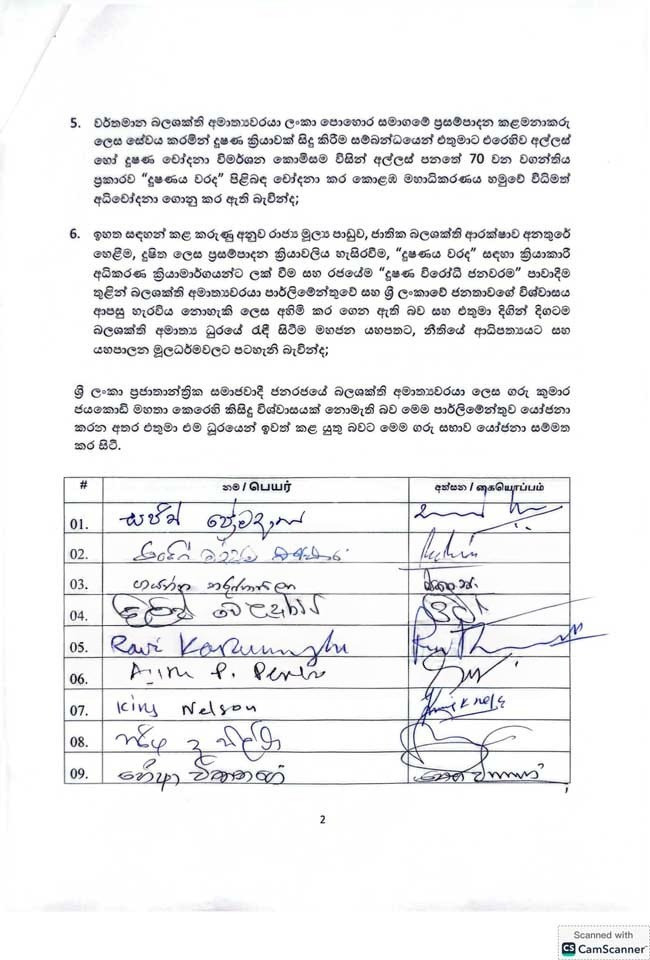 5. වර්තමාන බලශක්ති අමාත්‍යවරයා ලංකා පොහොර සමාගමේ ප්‍රසම්පාදන කළමනාකරු
ලෙස සේවය කරමින් දූෂණ ක්‍රියාවක් සිදු කිරීම සම්බන්ධයෙන් එතුමාට එරෙහිව අල්ලස්
හෝ දූෂණ චෝදනා විමර්ශන කොමිසම විසින් අල්ලස් පනතේ 70 වන වගන්තිය
ප්‍රකාරව “දූෂණය වරද” පිළිබඳ චෝදනා කර කොළඹ මහාධිකරණය හමුවේ විධිමත්
අධිචෝදනා ගොනු කර ඇති බැවින්ද;
6. ඉහත සඳහන් කළ කරුණු අනුව රාජ්‍ය මූල්‍ය පාඩුව, ජාතික බලශක්ති ආරක්ෂාව අනතුරේ
හෙළීම, දූෂිත ලෙස ප්‍රසම්පාදන ක්‍රියාවලිය හැසිරවීම, “දූෂණය වරද” සඳහා ක්‍රියාකාරී
අධිකරණ ක්‍රියාමාර්ගයන්ට ලක් වීම සහ රජයේම “දූෂණ විරෝධී ජනවරම” පාවාදීම
තුළින් බලශක්ති අමාත්‍යවරයා පාර්ලිමේන්තුවේ සහ ශ්‍රී ලංකාවේ ජනතාවගේ විශ්වාසය
ආපසු හැරවිය නොහැකි ලෙස අහිමි කර ගෙන ඇති බව සහ එතුමා දිගින් දිගටම
බලශක්ති අමාත්‍ය ධුරයේ රැඳී සිටීම මහජන යහපතට, නීතියේ ආධිපත්‍යයට සහ
යහපාලන මූලධර්මවලට පටහැනි බැවින්ද;
ශ්‍රී ලංකා ප්‍රජාතාන්ත්‍රික සමාජවාදී ජනරජයේ බලශක්ති අමාත්‍යවරයා ලෙස ගරු කුමාර
ජයකොඩි මහතා කෙරෙහි කිසිදු විශ්වාසයක් නොමැති බව මෙම පාර්ලිමේන්තුව යෝජනා
කරන අතර එතුමා එම ධූරයෙන් ඉවත් කළ යුතු බවට මෙම ගරු සභාව යෝජනා සම්මත
කර සිටී.
# නම / பெயர் අත්සන / கையொப்பம்
01. සජිත් ප්‍රේමදාස
02.
03. ගයන්ත කරුණාතිලක
04.
05. Ravi
06. P. Perera
07. King Nelson
08.
09.
2
Scanned with
CS CamScanner